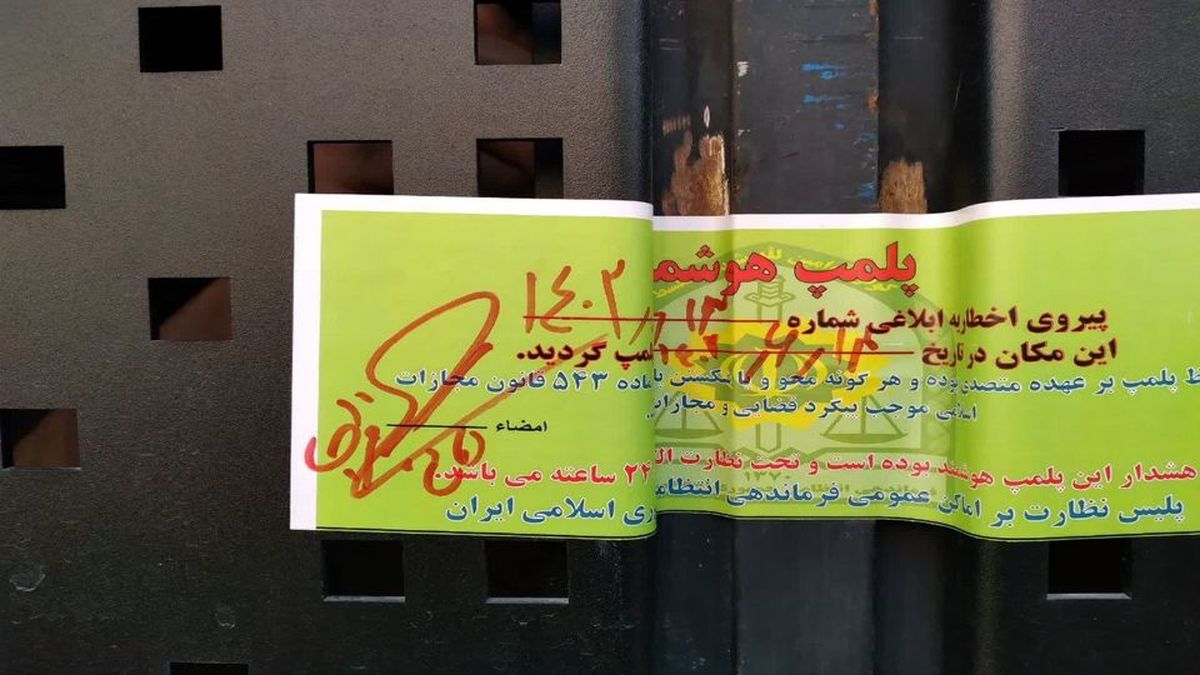 پلمپ هوشمـ
پیروی اخطاریه ابلاغی شماره ۱۴۰۲
این مکان در تاریخ لمپ گردید.
ظ پلمپ بر عهده متصدی بوده و هر گونه محو و یا شکستن ماده ۵۴۳ قانون مجازات
اسلامی موجب پیگرد قضایی و مجازات
امضاء
هشدار این پلمپ هوشمند بوده است و تحت نظارت ۲۴ ساعته می باشد.
پلیس نظارت بر اماکن عمومی فرماندهی انتظامی ری اسلامی ایران
۱۳۷۰